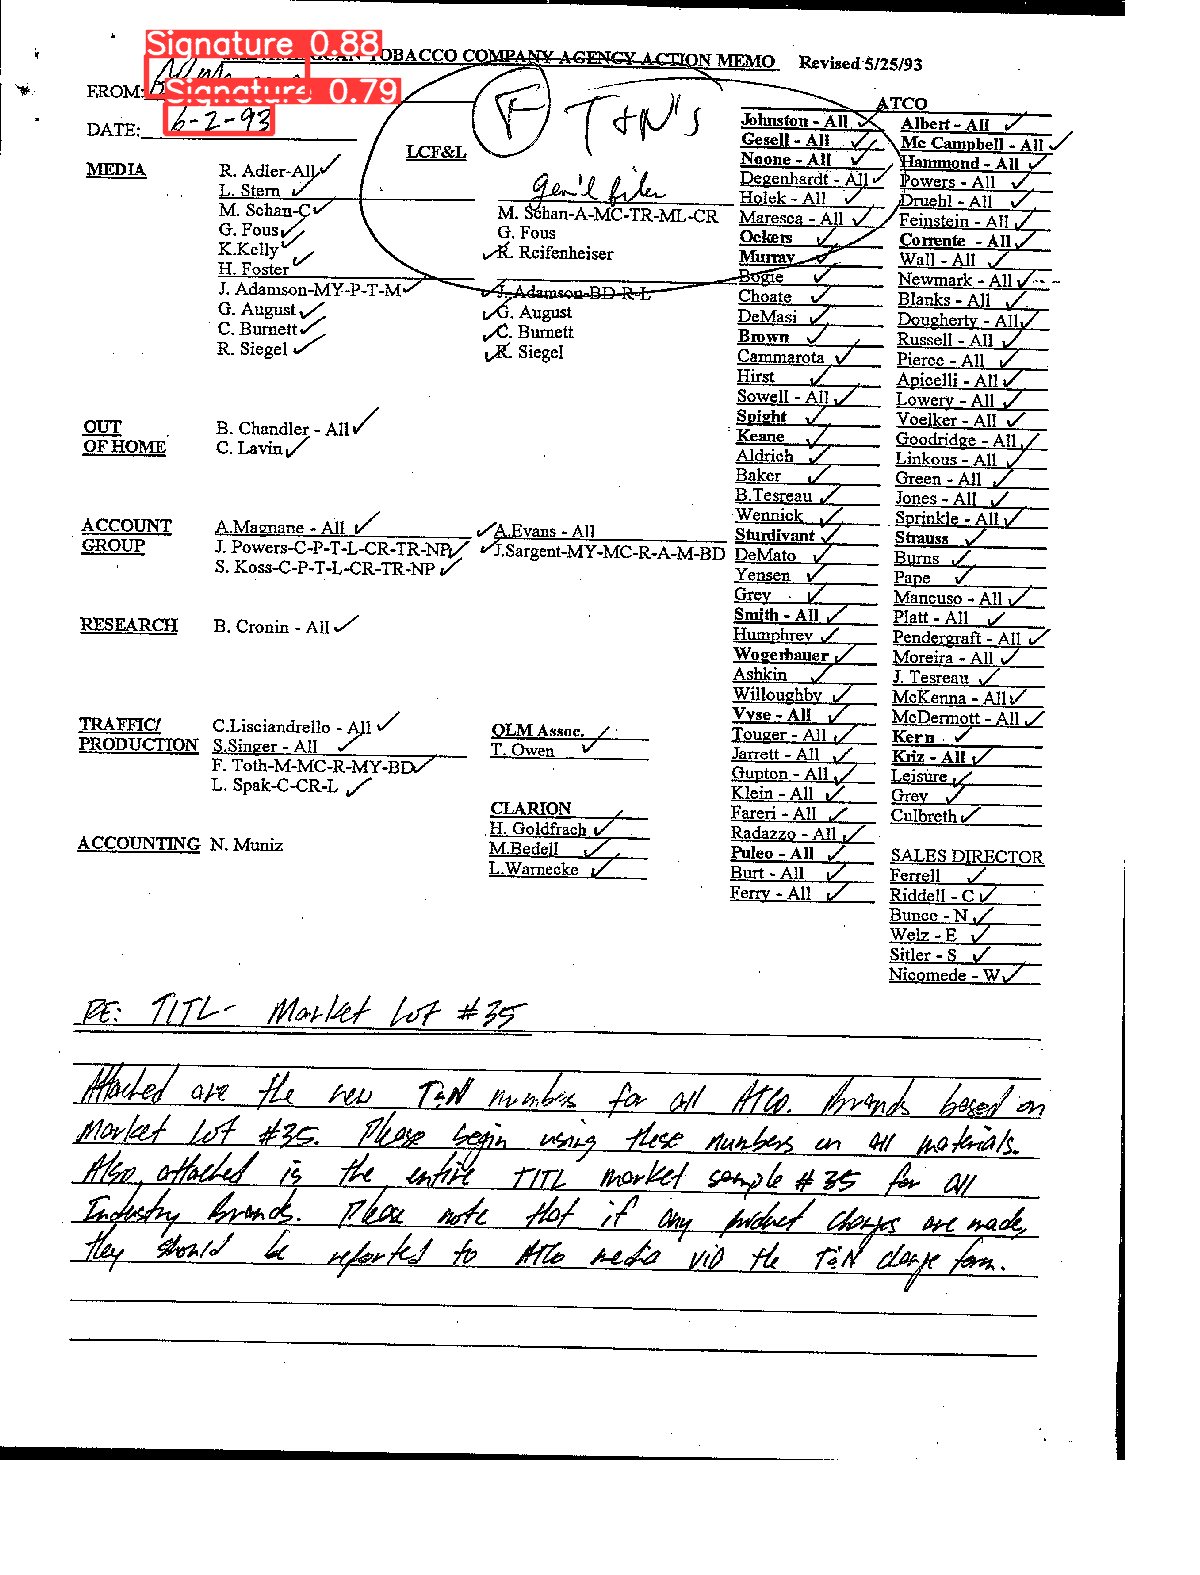 Signature 0.88
TOBACCO COMPANY AGENCY ACTION MEMO Revised 5/25/93
FROM:
Signature 0.79
DATE: 6-2-93
F T&N's
gen'l files
LCF&L
MEDIA
R. Adler-All
L. Stern
M. Schan-C
G. Fous
K.Kelly
H. Foster
J. Adamson-MY-P-T-M
G. August
C. Burnett
R. Siegel
M. Schan-A-MC-TR-ML-CR
G. Fous
K. Reifenheiser
J. Adamson-BD-R-L
G. August
C. Burnett
R. Siegel
OUT
OF HOME
B. Chandler - All
C. Lavin
ACCOUNT
GROUP
A.Magnane - All
J. Powers-C-P-T-L-CR-TR-NP
S. Koss-C-P-T-L-CR-TR-NP
A.Evans - All
J.Sargent-MY-MC-R-A-M-BD
RESEARCH
B. Cronin - All
TRAFFIC/
PRODUCTION
C.Lisciandrello - All
S.Singer - All
F. Toth-M-MC-R-MY-BD
L. Spak-C-CR-L
OLM Assoc.
T. Owen
CLARION
H. Goldfrach
M.Bedell
L.Warnecke
ACCOUNTING N. Muniz
ATCO
Johnston - All
Gesell - All
Noone - All
Degenhardt - All
Holek - All
Maresca - All
Ockers
Murray
Bogie
Choate
DeMasi
Brown
Cammarota
Hirst
Sowell - All
Spight
Keane
Aldrich
Baker
B.Tesreau
Wennick
Sturdivant
DeMato
Yensen
Grey
Smith - All
Humphrey
Wogerbauer
Ashkin
Willoughby
Vyse - All
Touger - All
Jarrett - All
Gupton - All
Klein - All
Fareri - All
Radazzo - All
Puleo - All
Burt - All
Ferry - All
Albert - All
Mc Campbell - All
Hammond - All
Powers - All
Druehl - All
Feinstein - All
Corrente - All
Wall - All
Newmark - All
Blanks - All
Dougherty - All
Russell - All
Pierce - All
Apicelli - All
Lowery - All
Voelker - All
Goodridge - All
Linkous - All
Green - All
Jones - All
Sprinkle - All
Strauss
Burns
Pape
Mancuso - All
Platt - All
Pendergraft - All
Moreira - All
J. Tesreau
McKenna - All
McDermott - All
Kern
Kriz - All
Leisure
Grey
Culbreth
SALES DIRECTOR
Ferrell
Riddell - C
Bunce - N
Welz - E
Sitler - S
Nicomede - W
RE: TITL - Market Lot #35
Attached are the new T&N numbers for all ATCo. Brands based on
Market Lot #35. Please begin using these numbers on all materials.
Also, attached is the entire TITL market sample #35 for all
Industry Brands. Please note that if any product changes are made,
they should be reported to ATCo media via the T&N change form.